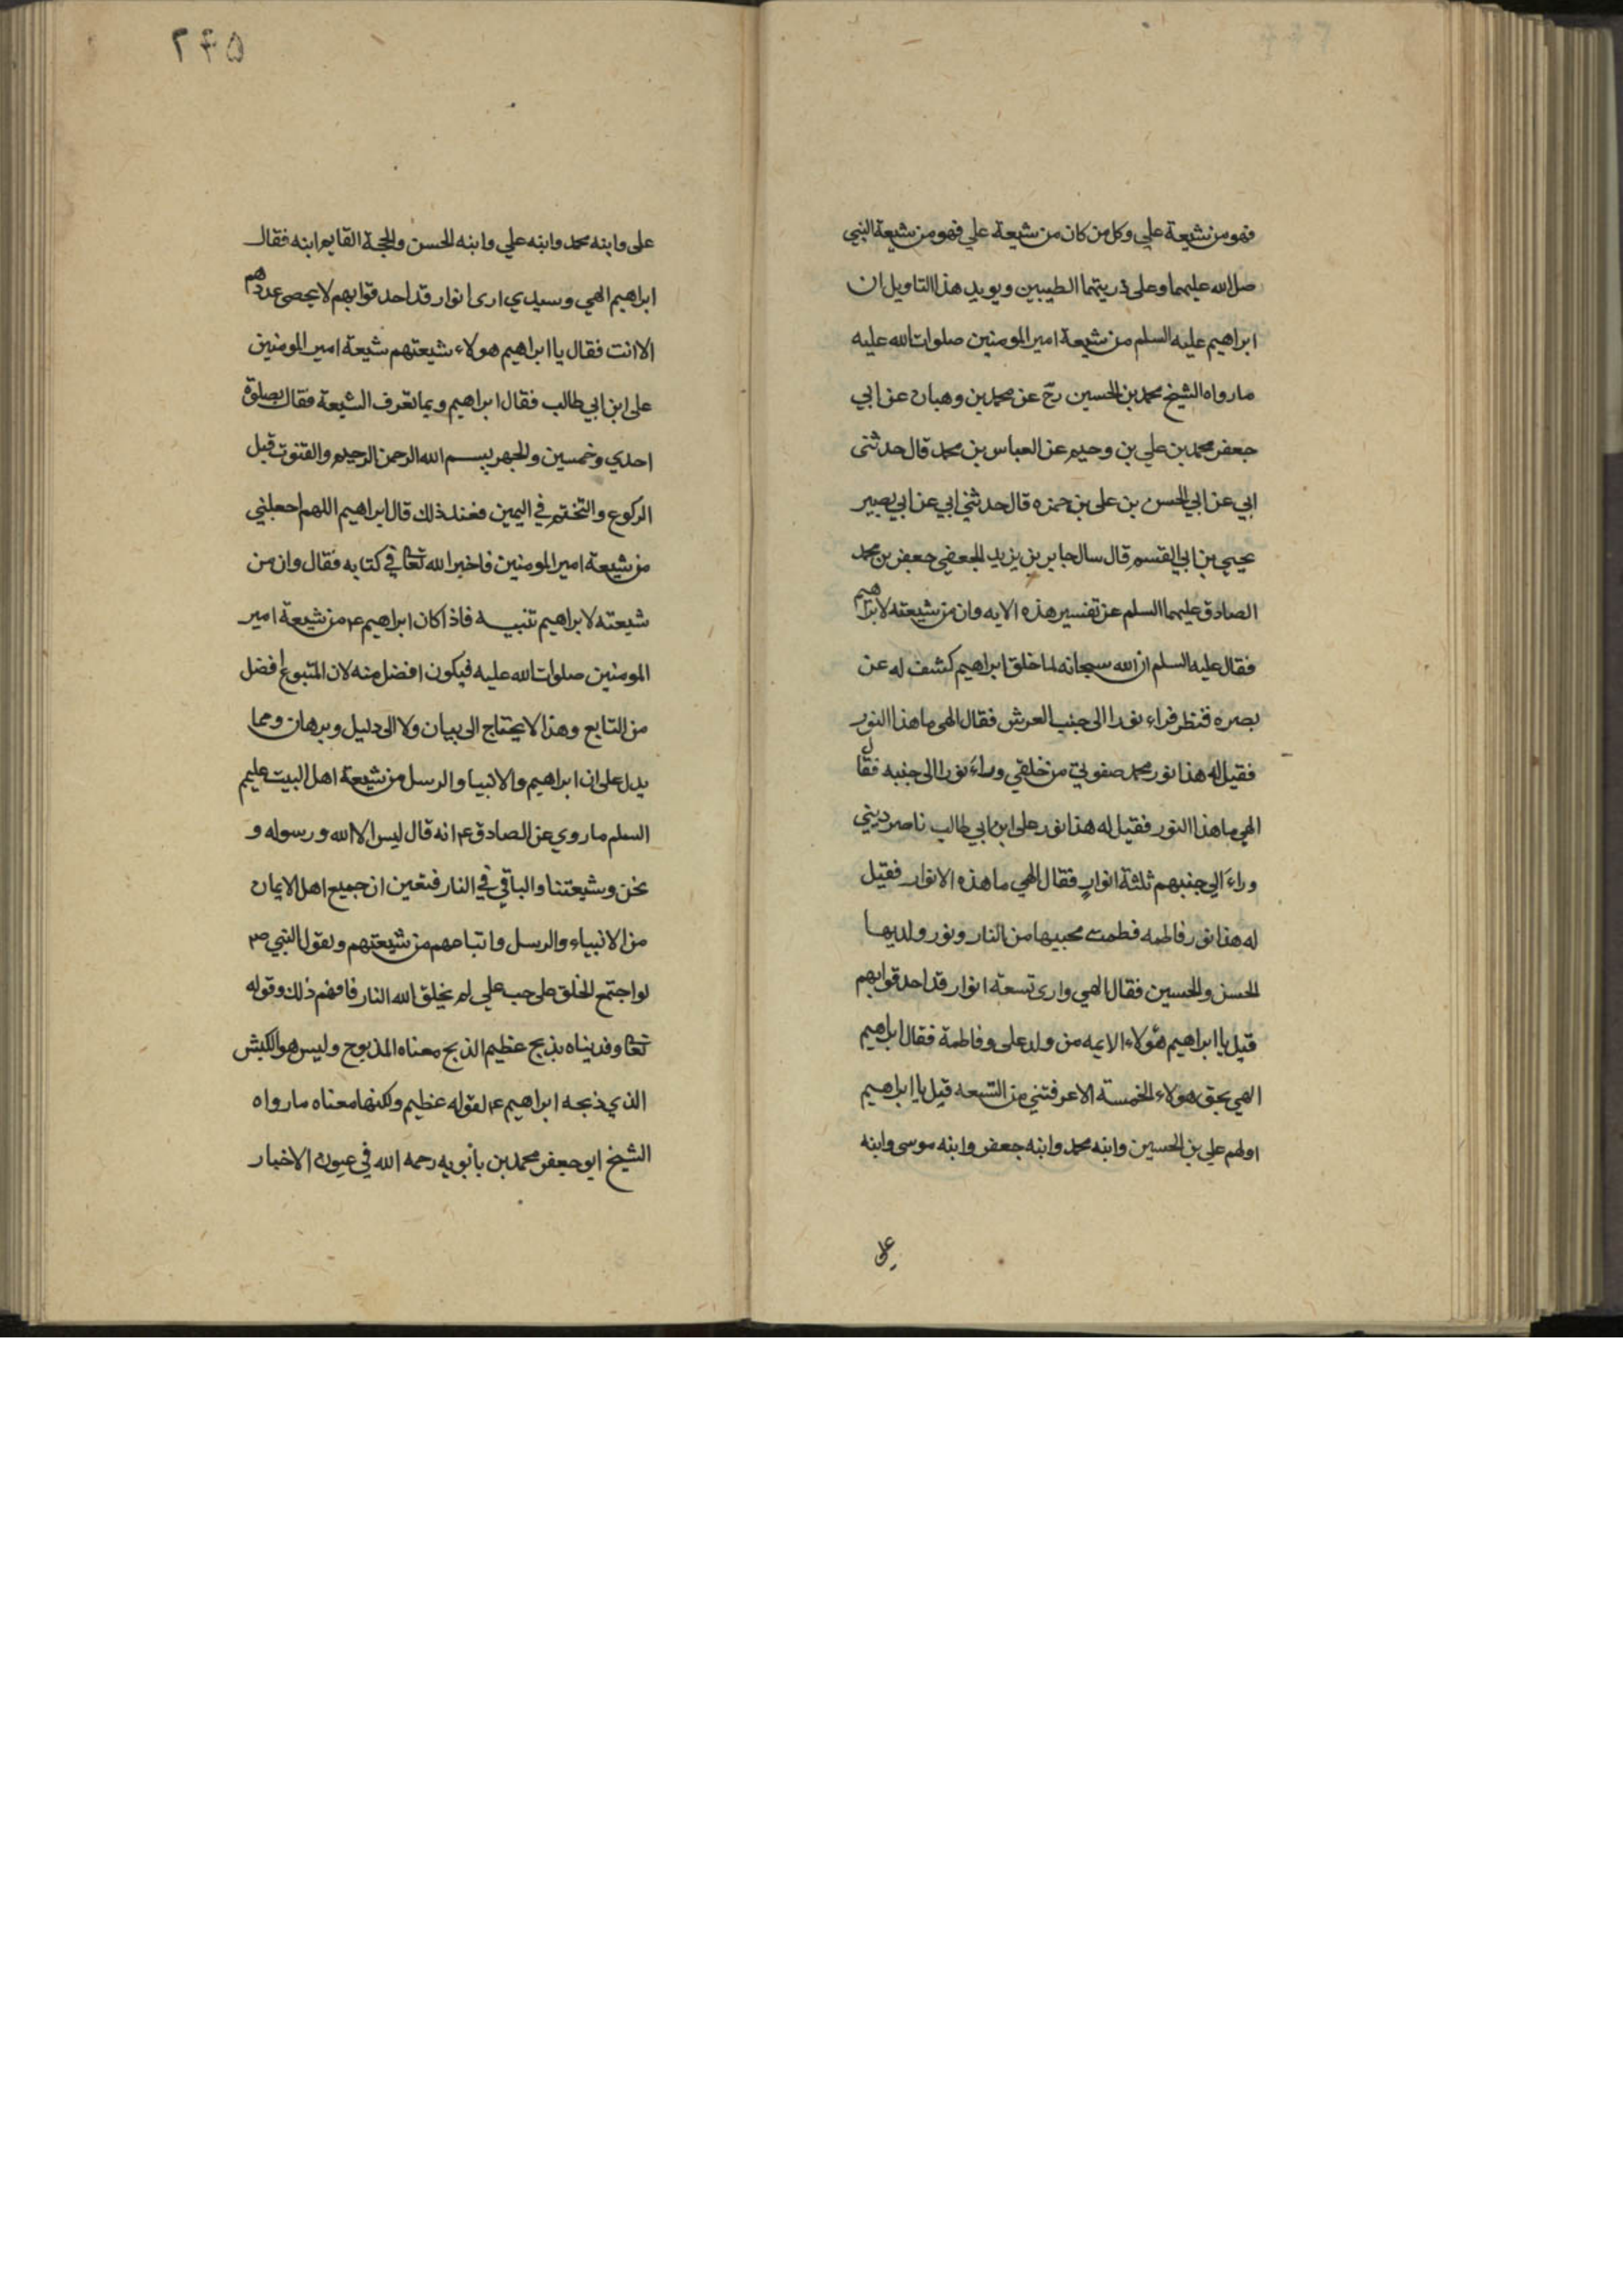 فهو من شيعة علي وكل من كان من شيعة علي فهو من شيعة النبي
صل الله عليهما وعلى ذريتهما الطيبين ويويد هذا التاويل ان
ابراهيم عليه السلم من شيعة امير المومنين صلوات الله عليه
مارواه الشيخ محمد بن الحسين رح عن محمد بن وهبان عن ابي
جعفر محمد بن علي بن وحيم عن العباس بن محمد قال حدثنى
ابي عن ابي الحسن بن على بن حمزه قال حدثني ابي عن ابي بصير
يحيي بن ابي القسم قال سال جابر بن يزيد الجعفي جعفر بن محمد
الصادق عليهما السلم عن تفسير هذه الايه وان من شيعته لابراهيم
فقال عليه السلم ان الله سبحانه لما خلق ابراهيم كشف له عن
بصره فنظر فراء نورا الى جنب العرش فقال الهى ما هذا النور
فقيل له هذا نور محمد صفوتي من خلقي وراء نورا الى جنبه فقال
الهي ما هذا النور فقيل له هذا نور على ابن ابي طالب ناصر ديني
وراء الي جنبهم ثلثة انوار فقال الهي ما هذه الانوار فقيل
له هذا نور فاطمه فطمت محبيها من النار ونور ولديها
الحسن والحسين فقال الهي وارى تسعة انوار قد احدقوا بهم
قيل يا ابراهيم هؤلاء الايمه من ولد على وفاطمة فقال ابراهيم
الهي بحق هولاء الخمسة الا عرفتني من التسعه قيل يا ابراهيم
اولهم علي بن الحسين وابنه محمد وابنه جعفر وابنه موسى وابنه
على
۲۴۵
على وابنه محمد وابنه علي وابنه الحسن والحجة القايم ابنه فقال
ابراهيم الهي وسيدي ارى انوار قد احدقوا بهم لا يحصى عددهم
الا انت فقال يا ابراهيم هولاء شيعتهم شيعة امير المومنين
على ابن ابي طالب فقال ابراهيم وبما تعرف الشيعة فقال بصلوة
احدي وخمسين والجهر ببسم الله الرحمن الرحيم والقنوت قبل
الركوع والتختم في اليمين فعند ذلك قال ابراهيم اللهم اجعلني
من شيعة امير المومنين فاخبر الله تعا في كتابه فقال وان من
شيعته لابراهيم تنبيه فاذا كان ابراهيم ع من شيعة امير
المومنين صلوات الله عليه فيكون افضل منه لان المتبوع افضل
من التابع وهذا لا يحتاج الى بيان ولا الى دليل وبرهان ومما
يدل على ان ابراهيم والانبيا والرسل من شيعة اهل البيت عليهم
السلم ما روي عن الصادق ع انه قال ليس الا الله ورسوله و
نحن وشيعتنا والباقي في النار فتعين ان جميع اهل الايمان
من الانبياء والرسل واتباعهم من شيعتهم ولقول النبي ص
لو اجتمع الخلق على حب علي لم يخلق الله النار فافهم ذلك وقوله
تعا وفديناه بذبح عظيم الذبح معناه المذبوح وليس هو الكبش
الذي ذبحه ابراهيم ع لقوله عظيم ولكنها معناه مارواه
الشيخ ابو جعفر محمد بن بأبويه رحمه الله في عيون الاخبار